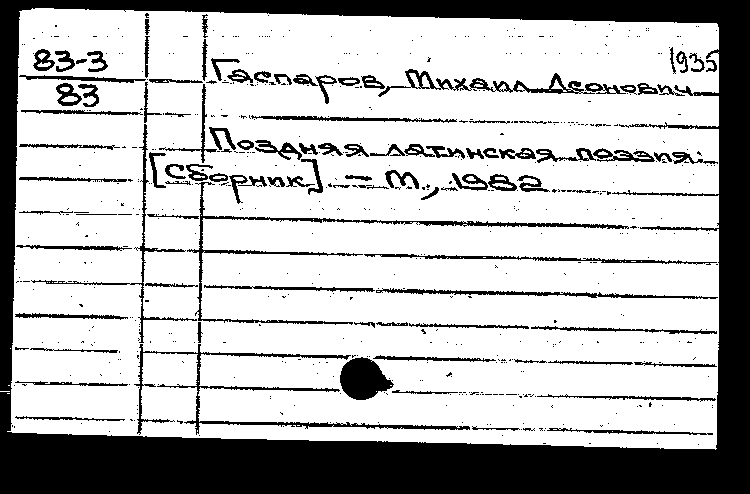 83-3
83
1935
Гаспаров, Михаил Леонович
Поздняя латинская поэзия:
[Сборник]. - М., 1982